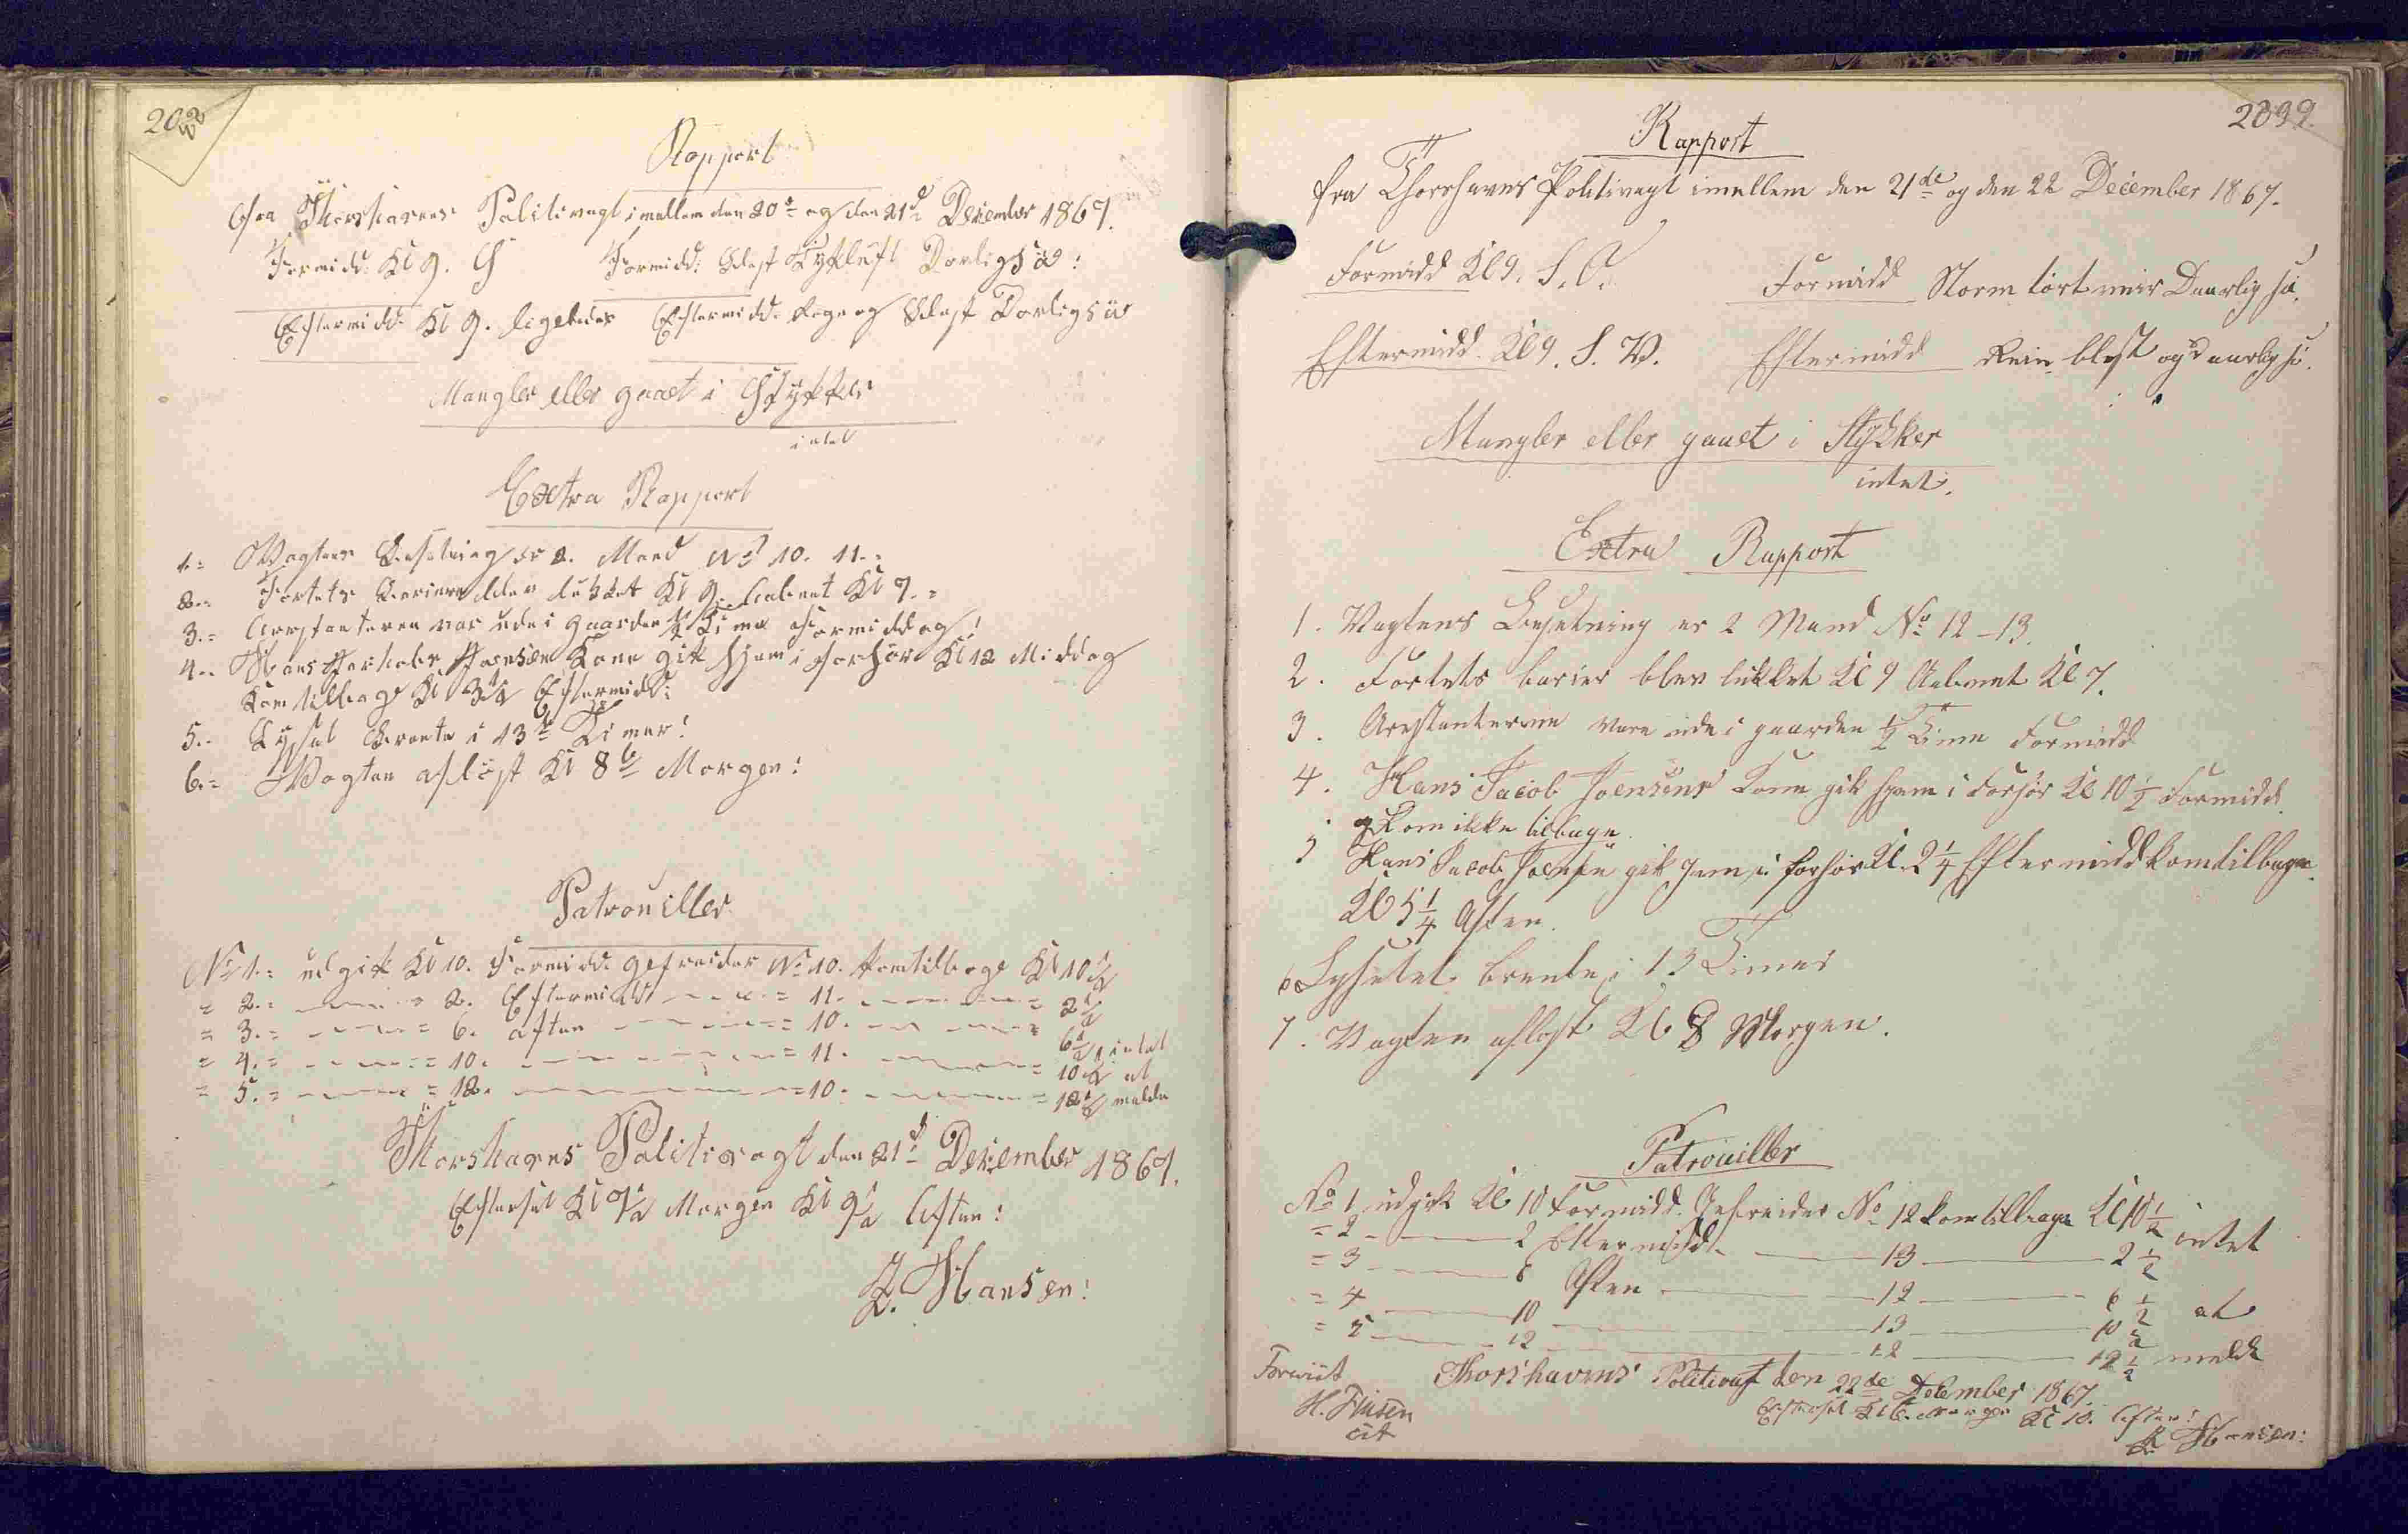 202
Rapport
fra Thorshavns Politivagt imellem den 20de og den 21de December 1867.
Formidd: Kl 9. S Formidd: Blæst Tykluft Daarlig Sö:
Eftermidd. Kl 9. ligeledes Eftermidd. Regn og Blæst Daarlig Sö
Mangler eller gaaet i Stykker
intet
Extra Rapport
1.= Vagtens Besætning er 2. Mand No 10. 11.=
2.= Fortets Barier blev lukket Kl 9. aabnet Kl 7.=
3.= Arrestanteren var ude i gaarden 1/2 Time Formiddag!
4.= Hans Jacob Joensen Kone gik hjem i Forhör Kl 12 Middag
Kom tilbage Kl 3 1/2 Eftermidd:
5.- Lyset Brænte i 13de Timer!
6.= Vagten aflöst Kl 8 Morgen!
Patrouiller
No 1.= udgik Kl 10. Formidd. gefreider No 10. komtilbage Kl 10 1/2
= 2.= - 2. Eftermidd - = 11. - = 2 1/2
= 3.= - = 6. aften - = 10. - = 6 1/2
= 4.= - = 10. - = 11. - = 10 1/2 intet
= 5.= - = 12. - = 10. - = 12 1/2 at melde
Thorshavns Politivagt den 21de December 1867.
Efterset Kl 7 1/2 Morgen Kl 9 1/2 Aften!
Z. Hansen:
2039.
Rapport
fra Thorshavns Politivagt imellem den 21de og den 22 December 1867.
Formidd Kl 9. S.O. Formidd Storm tört veir Daarlig sö.
Eftermidd. Kl 9. S. V. Eftermidd Rein blest og daarlig sö.
Mangler eller gaaet i Stykker
intet.
Extra Rapport
1. Vagtens Besetning er 2 Mand No 12-13.
2. Fortets barier blev lukket Kl 9 Aabnet Kl 7.
3. Arestanterne vare ude i gaarden 1/2 Time Formidd
4. Hans Jacob Joensens Kone gik hjem i Forhör Kl 10 1/2 Formidd.
og Kom ikke tilbage.
5 Hans Jacob Joensen gik hjem i forhör Kl. 2 1/4 Eftermidd kom tilbage
Kl 5 1/4 Aften.
6 Lysetet brente i 13 Timer
7. Vagten aflöst Kl 8 Morgen.
Patrouiller
No 1 udgik Kl 10 Formidd. Gefreider No 12 kom tilbage Kl 10 1/2 intet
= 2 - 2 Eftermidd. - 13 - 2 1/2
= 3 - 6 Aften - 12 - 6 1/2 at
= 4 - 10 - 13 - 10 1/2
= 5 - 12 - 12 - 12 1/2 melde
Forevist Thorshavns Politivagt den 22de December 1867.
H. Finsen Efterset Kl 6. Morgen Kl 10. Aften!
cst Z. Hansen: